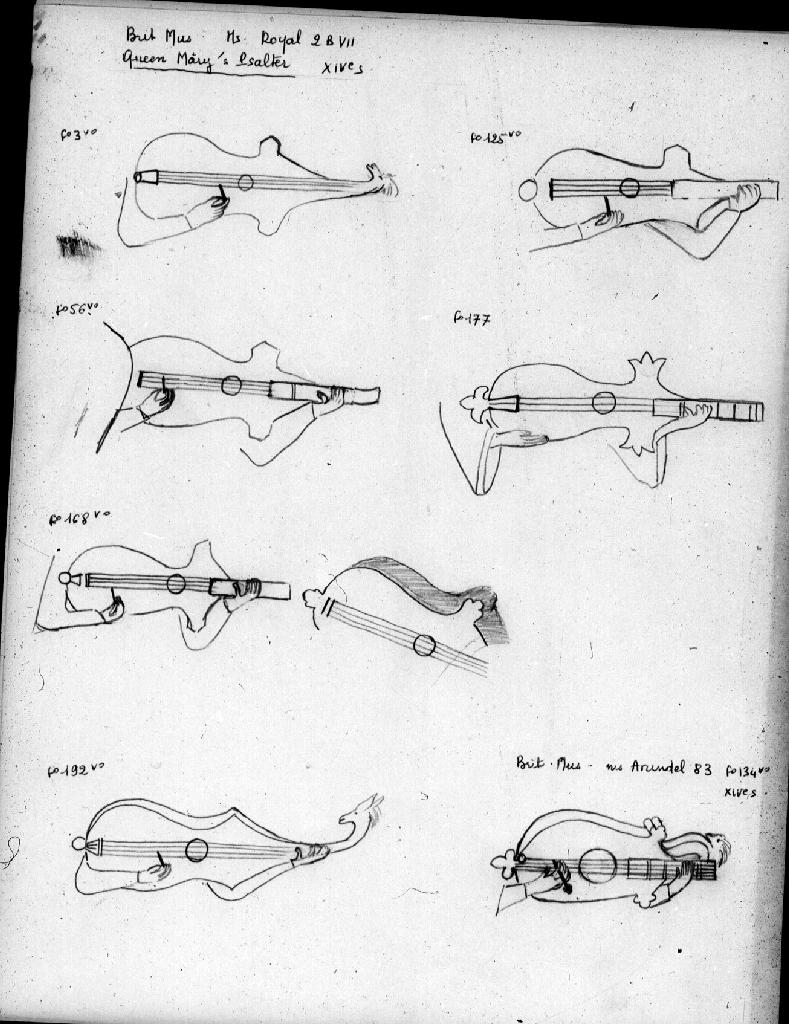 Brit Mus. Ms. Royal 2 B VII
Queen Mary's Psalter XIVe s
fo 3 vo
fo 125 vo
fo 56 vo
fo 177
fo 168 vo
fo 192 vo
Brit. Mus - ms Arundel 83 fo 134 vo
XIVe s.